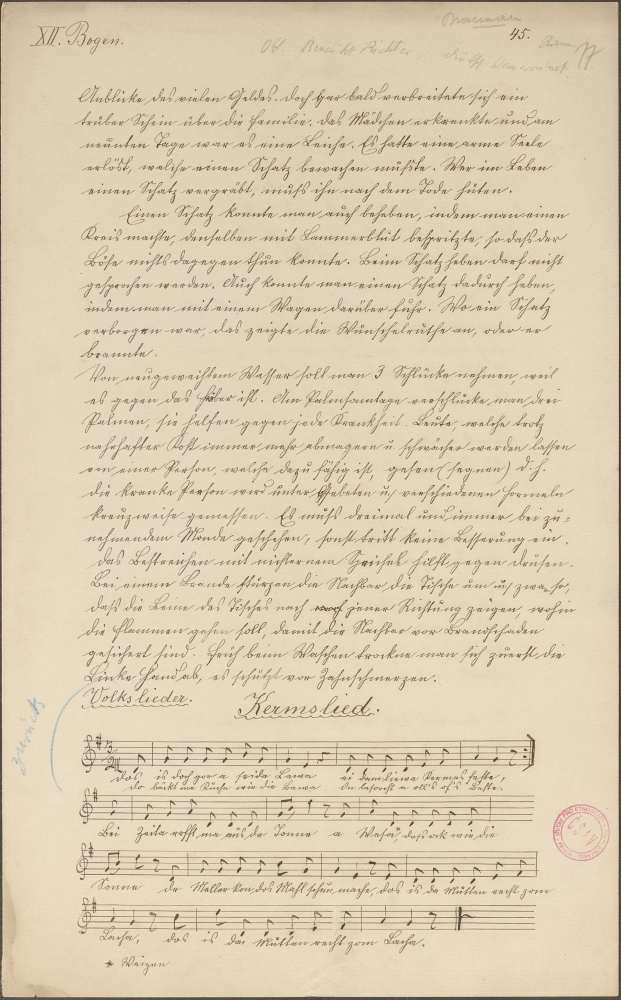 XII. Bogen.
45.
Anblicke des vielen Geldes. Doch gar bald verbreitete sich ein
trüber Schein über die Familie. Das Mädchen erkrankte und am
neunten Tage war es eine Leiche. Es hatte eine arme Seele
erlöst, welche einen Schatz bewachen mußte. Wer im Leben
einen Schatz vergräbt, muß ihn nach dem Tode hüten.
Einen Schatz konnte man auch beheben, indem man einen
Kreis machte, denselben mit Lammerblut bespritzte, so daß der
Böse nichts dagegen thun konnte. Beim Schatzheben darf nicht
gesprochen werden. Auch konnte man einen Schatz dadurch heben,
indem man mit einem Wagen darüber fuhr. Wo ein Schatz
verborgen war, das zeigte die Wünschelruthe an, oder er
brannte.
Von neugeweihtem Wasser soll man 3 Schlücke nehmen, weil
es gegen das Fieber ist. Am Palmsonntage verschlucke man drei
Palmen, sie helfen gegen jede Krankheit. Leute, welche trotz
nahrhafter Kost immer mehr abmagern u. schwächer werden lassen
von einer Person, welche dazu fähig ist, (segnen) d. h.
die kranke Person wird unter Gebeten u. verschiedenen Formeln
kreuzweise gemessen. Es muß dreimal und immer bei zu-
nehmendem Monde geschehen, sonst tritt keine Besserung ein.
Das Bestreichen mit nüchternem Speichel hilft gegen Drüsen.
Bei einem Brande stürzen die Nachbar die Tische um u. zwar so,
daß die Beine des Tisches nach jener Richtung zeigen, wohin
die Flammen gehen soll, damit die Nachbar vor Brandschaden
gesichert sind. Früh beim Waschen trockne man sich zuerst die
Linke Hand ab, es schützt vor Zahnschmerzen.
Volkslieder.
Kermslied.
Dos is doch gor a
do backt ma Kuche wie die
Bei Zeita rofft ma aus da Tonne a daß ock wie die
Sonne de Maller kon dos Mahl schun mache, dos is da Mutten racht zom
Lacha, dos is da Mutten racht zom Lacha.
* Weizen